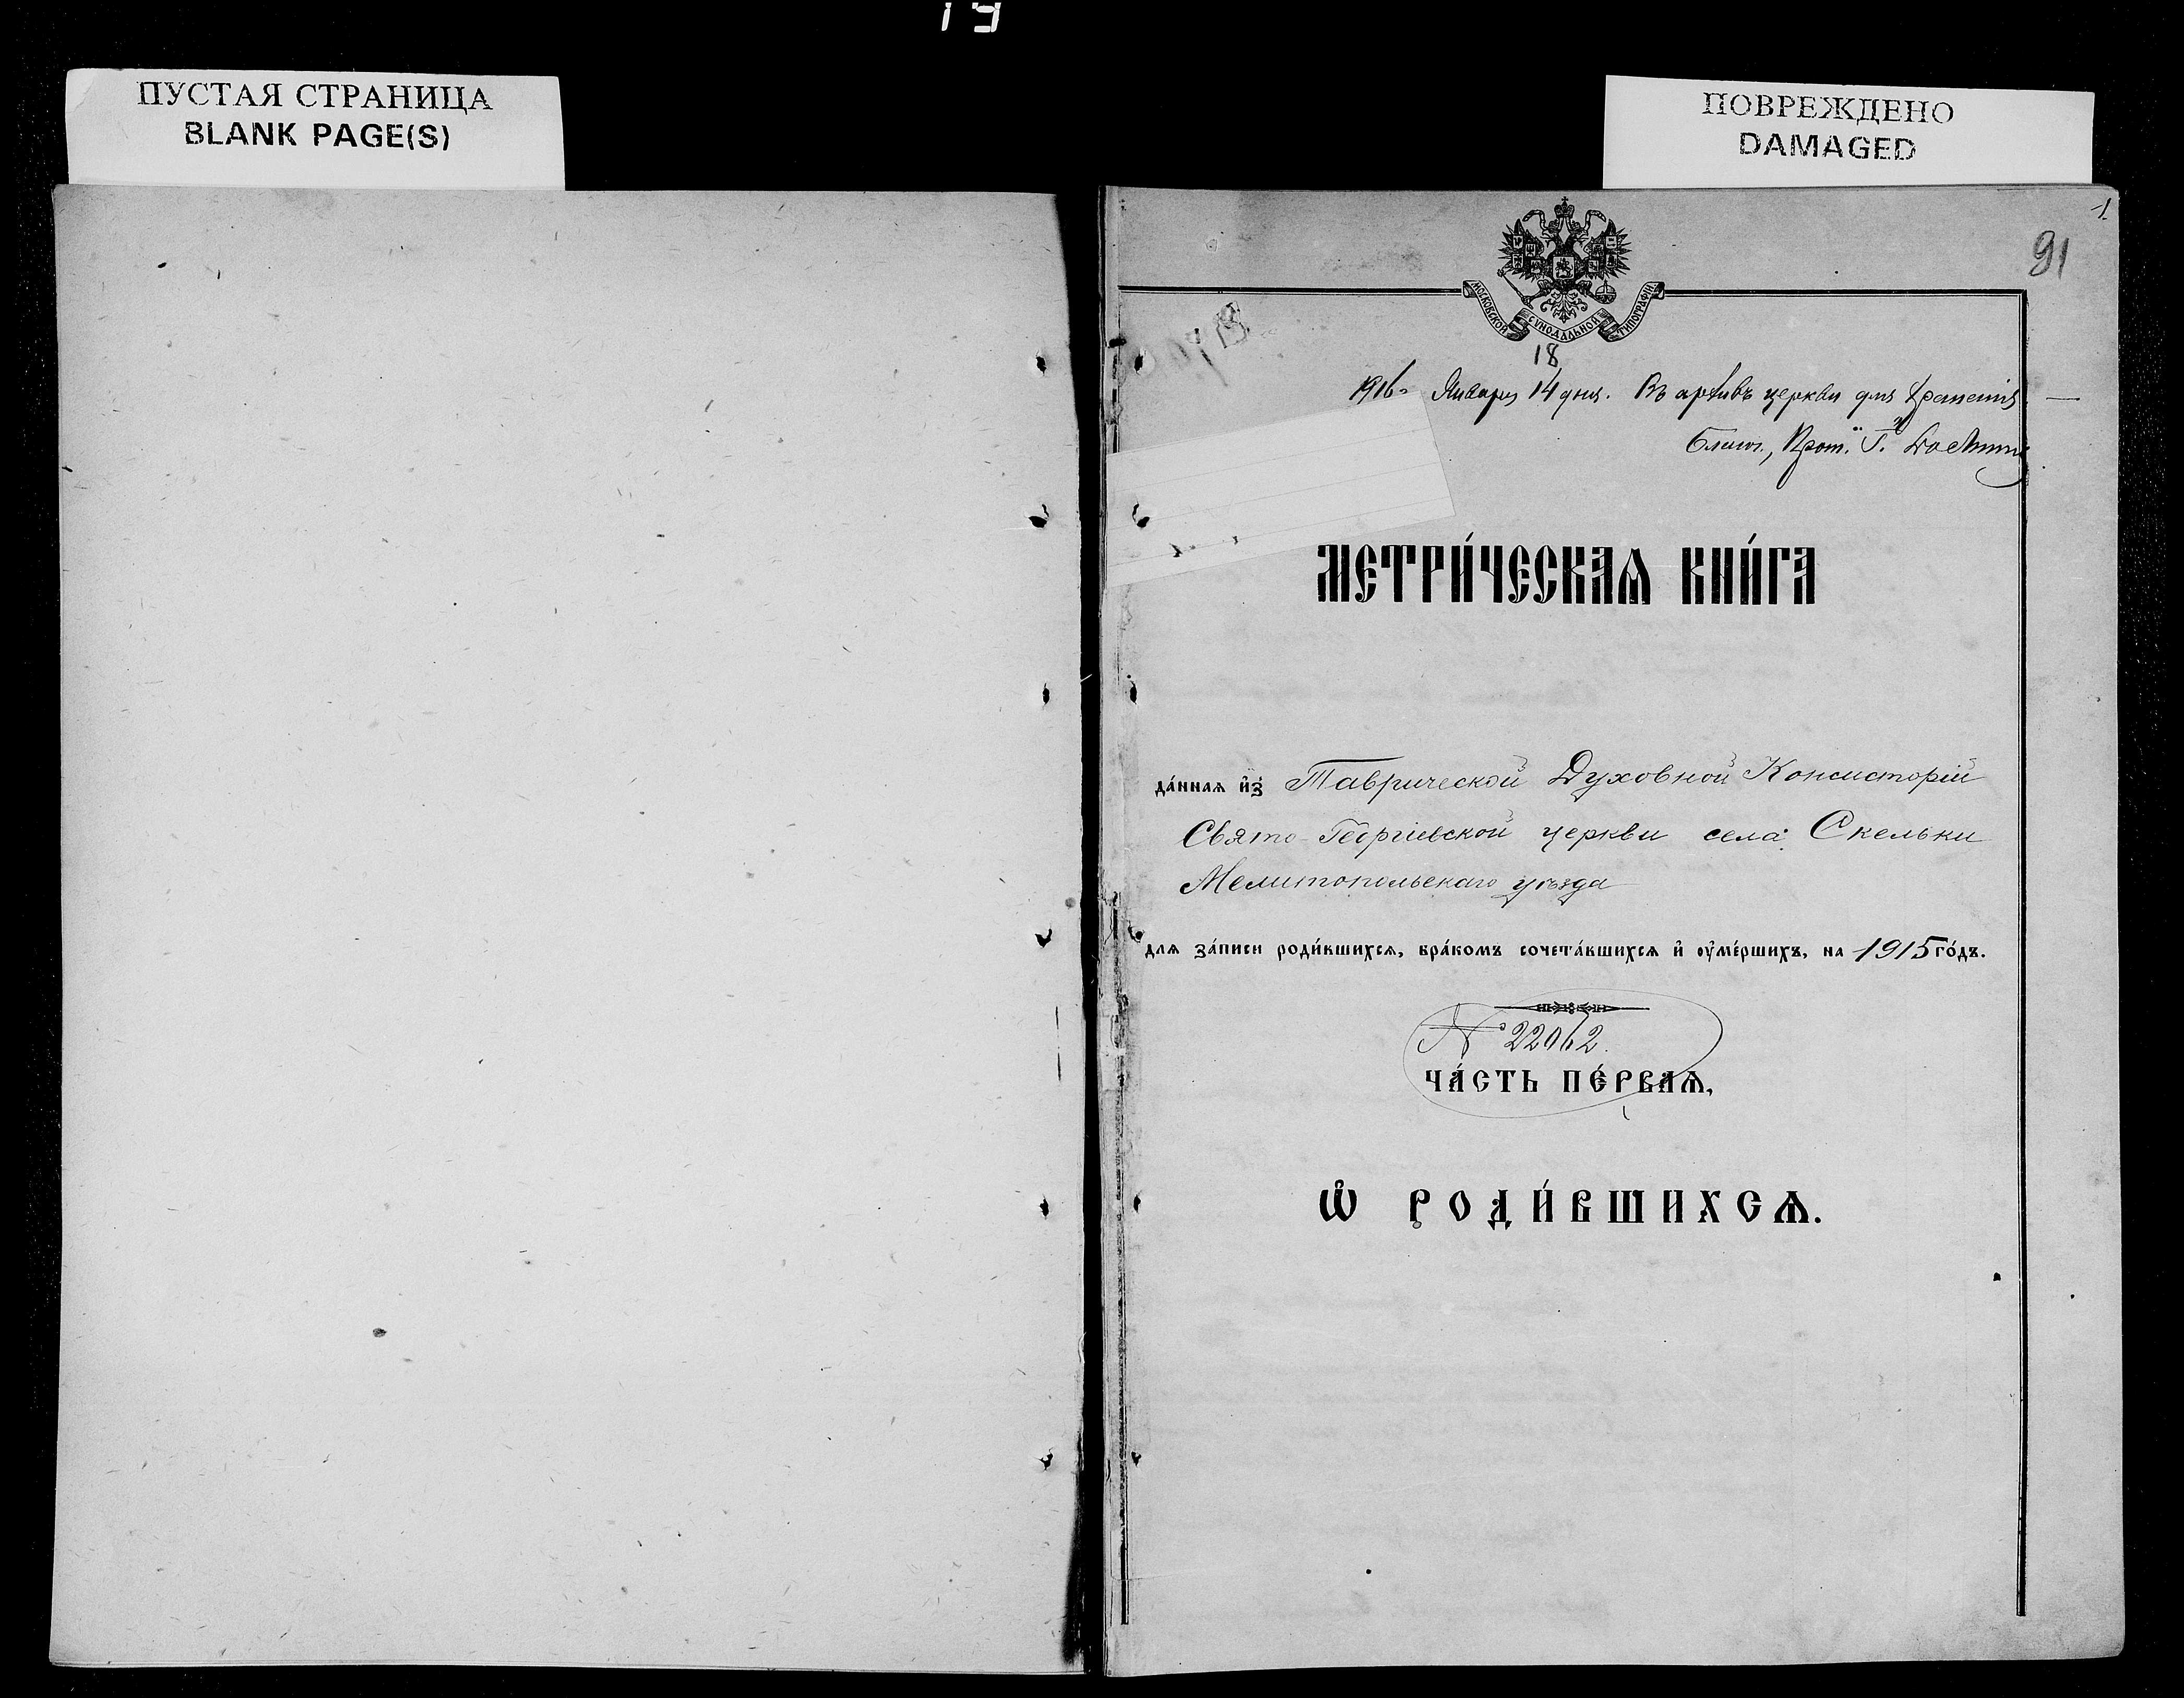 19
ПУСТАЯ СТРАНИЦА
BLANK PAGE(S)
ПОВРЕЖДЕНО
DAMAGED
1.
91
МОСКОВСКОЙ СУНОДАЛЬНОЙ ТИПОГРАФІИ
18
1916 г. Января 14 дня. Въ архивъ церкви для храненія
Благоч., Прот. Г.
МЕТРИ́ЧЕСКАѦ КНИ́ГА
да́ннаѧ и҆з̾ Таврической Духовной Консисторіи
Свято-Георгіевской церкви села Скельки
Мелитопольскаго уѣзда
для за́писи роди́вшихсѧ, бра́комъ сочета́вшихсѧ и҆ оу҆ме́ршихъ, на 1915 го́дъ.
№ 22062.
ЧА́СТЬ ПЕ́РВАѦ,
Ѡ҆ РОДИ́ВШИХСѦ.